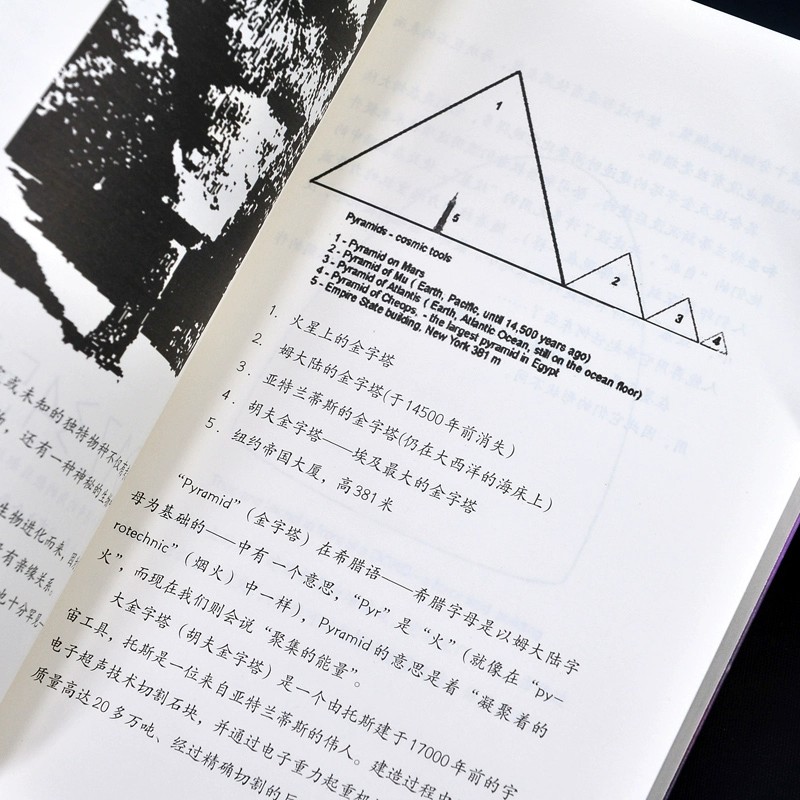 或未知的独特物种不仅
，还有一种神秘的生
生物进化而来，
有亲缘关系
也十分罕见
1
2
3
4
5
Pyramids - cosmic tools
1 - Pyramid on Mars
2 - Pyramid of Mu ( Earth, Pacific, until 14,500 years ago)
3 - Pyramid of Atlantis ( Earth, Atlantic Ocean, still on the ocean floor)
4 - Pyramid of Cheops, - the largest pyramid in Egypt
5 - Empire State building, New York 381 m
1. 火星上的金字塔
2. 姆大陆的金字塔(于14500年前消失)
3. 亚特兰蒂斯的金字塔(仍在大西洋的海床上)
4. 胡夫金字塔——埃及最大的金字塔
5. 纽约帝国大厦，高381米
“Pyramid”（金字塔）在希腊语——希腊字母是以姆大陆字
母为基础的——中有一个意思，“Pyr”是“火”（就像在“py-
rotechnic”（烟火）中一样），Pyramid的意思是着“凝聚着的
火”，而现在我们则会说“聚集的能量”。
大金字塔（胡夫金字塔）是一个由托斯建于17000年前的宇
宙工具，托斯是一位来自亚特兰蒂斯的伟人。建造过程由
电子超声技术切割石块，并通过电子重力起重机
质量高达20多万吨、经过精确切割的